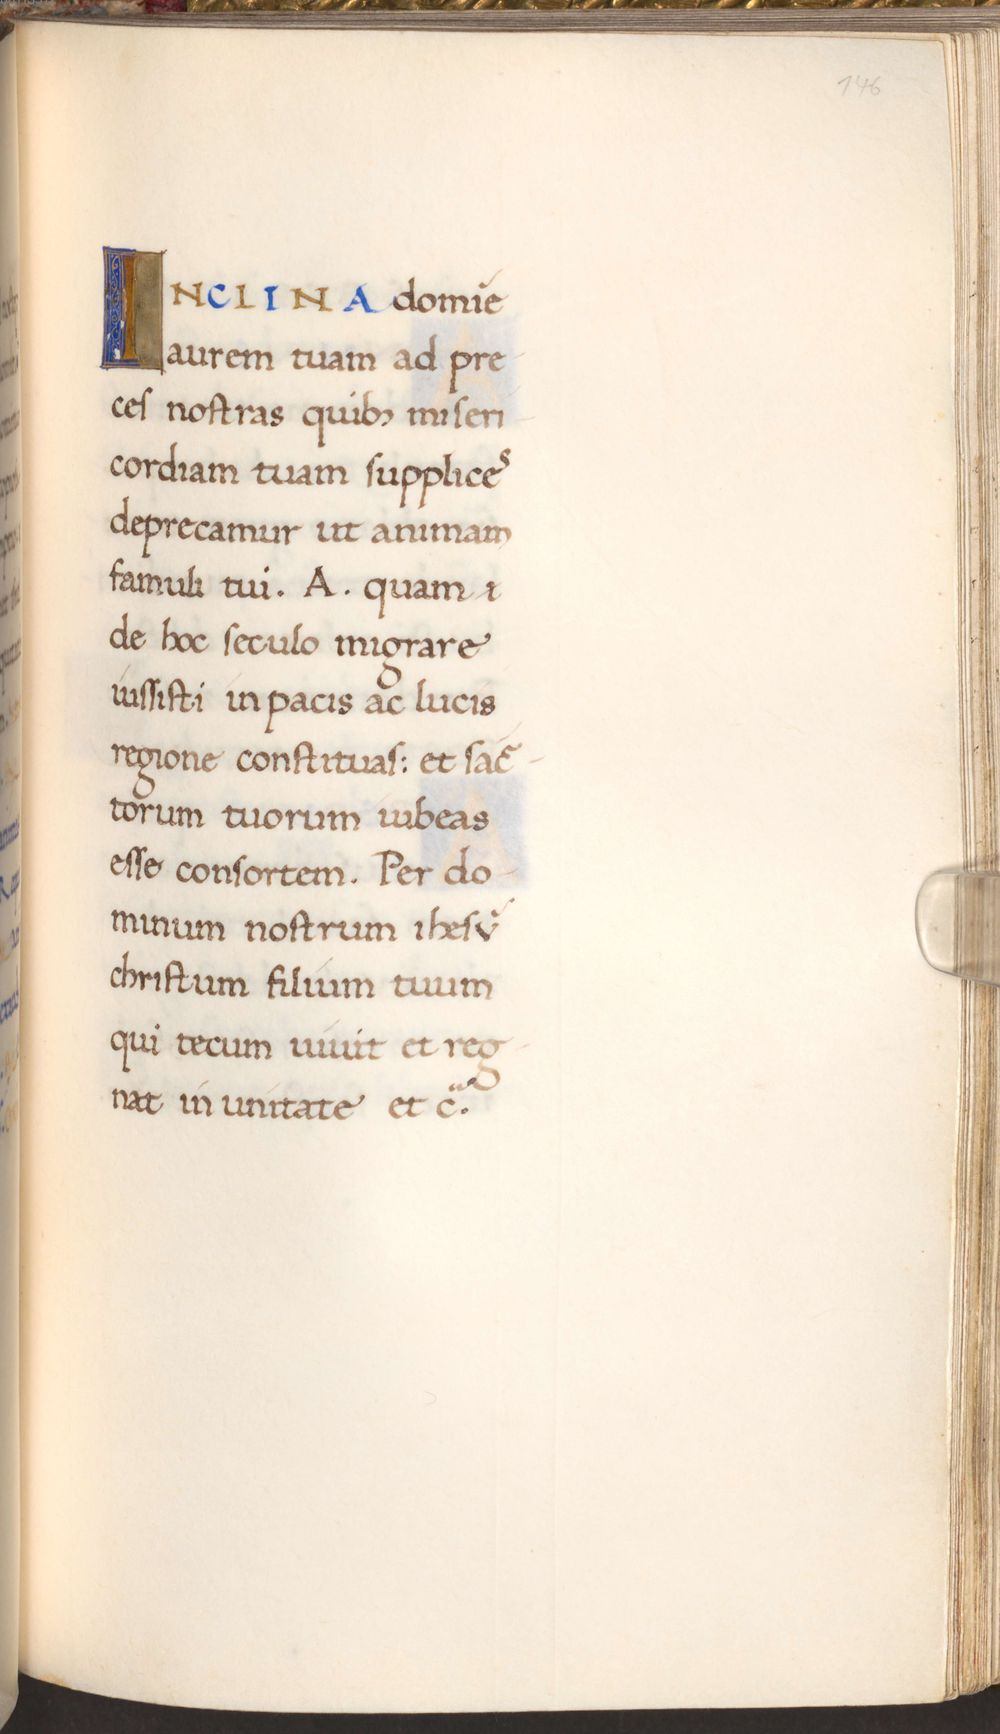 146
INCLINA domīe
aurem tuam ad pre
ces nostras quibꝫ miseri
cordiam tuam supplices
deprecamur ut animam
famuli tui. A. quam ⁊
de hoc seculo migrare
iussisti in pacis ac lucis
regione constituas: et sāc
torum tuorum iubeas
esse consortem. Per do
minum nostrum ihesū
christum filium tuum
qui tecum uiuit et reg
nat in unitate et cͣ.